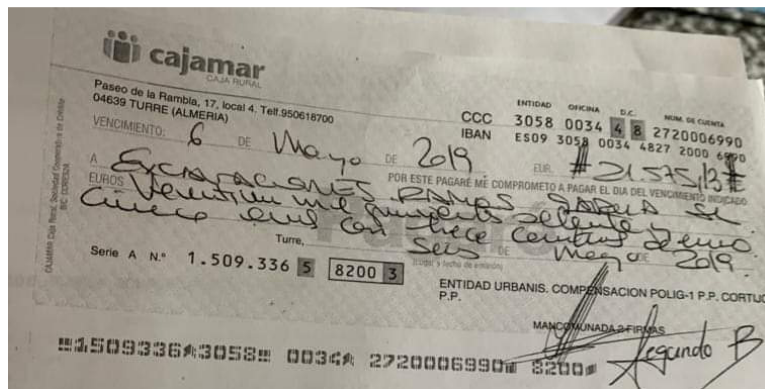 cajamar
CAJA RURAL
Paseo de la Rambla, 17, local 4. Telf.950618700
04639 TURRE (ALMERIA)
ENTIDAD OFICINA D.C. NUM. DE CUENTA
CCC 3058 0034 4 8 2720006990
IBAN ES09 3058 0034 4827 2000 6990
VENCIMIENTO: 6 DE Mayo DE 2019 EUR. # 21.575,13 #
POR ESTE PAGARÉ ME COMPROMETO A PAGAR EL DIA DEL VENCIMIENTO INDICADO
A EXCAVACIONES RAMOS SL
EUROS Veintiun mil quinientos setenta y
cinco euros con trece centimos de euro.
Turre, seis DE Mayo DE 2019.
(Lugar y fecha de emisión)
Serie A N.º 1.509.336 5 8200 3
ENTIDAD URBANIS. COMPENSACION POLIG-1 P.P. CORTIJO
P.P.
MANCOMUNADA 2 FIRMAS
Segundo B
1509336 3058 0034 2720006990 8200
CAJAMAR Caja Rural, Sociedad Cooperativa de Crédito